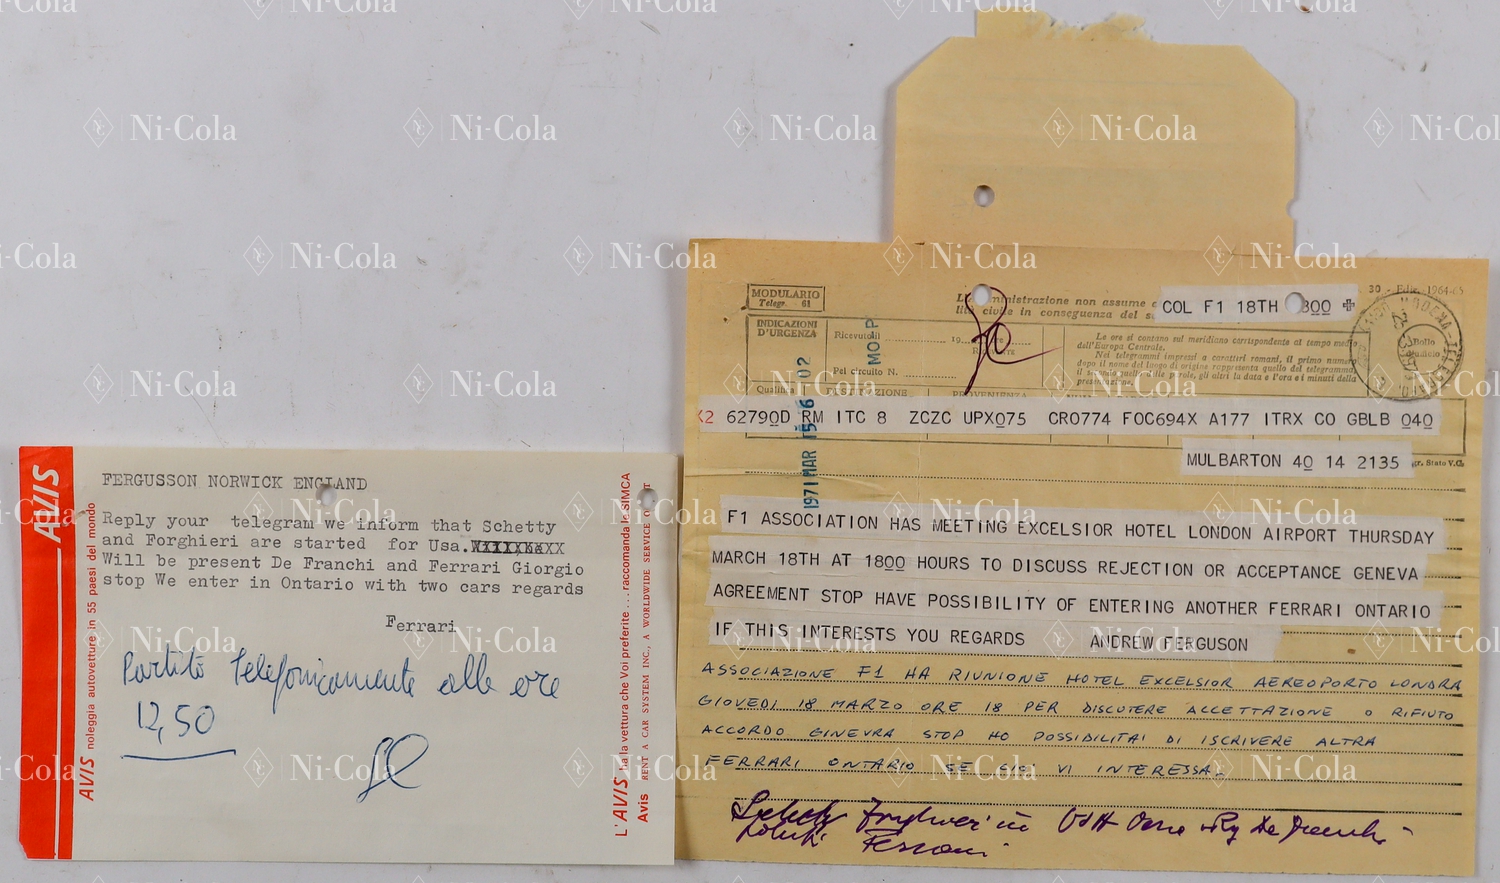 AVIS
AVIS noleggia autovetture in 55 paesi del mondo
FERGUSSON NORWICK ENGLAND
Reply your telegram we inform that Schetty
and Forghieri are started for Usa.
Will be present De Franchi and Ferrari Giorgio
stop We enter in Ontario with two cars regards
Ferrari
Partito Telefonicamente alle ore
12,50
L'AVIS ha la vettura che Voi preferite... raccomanda le SIMCA
Avis RENT A CAR SYSTEM INC., A WORLDWIDE SERVICE OF ITT
MODULARIO
Telegr. 61
30 - Ediz. 1964-65
L'Amministrazione non assume
lità civile in conseguenza del
COL F1 18TH 1800 +
INDICAZIONI
D'URGENZA
Ricevuto il
19
Pel circuito N.
Le ore si contano sul meridiano corrispondente al tempo medio
dell'Europa Centrale.
Nei telegrammi impressi a caratteri romani, il primo numero
dopo il nome del luogo di origine rappresenta quello del telegramma,
il secondo quello delle parole, gli altri la data e l'ora e i minuti della
presentazione.
Bollo
d'ufficio
Qualifica
DESTINAZIONE
PROVENIENZA
1971 MAR 15 02
MOAP
X2 62790D RM ITC 8 ZCZC UPX075 CR0774 FOC694X A177 ITRX CO GBLB 040
MULBARTON 40 14 2135
gr. Stato V.C.
F1 ASSOCIATION HAS MEETING EXCELSIOR HOTEL LONDON AIRPORT THURSDAY
MARCH 18TH AT 1800 HOURS TO DISCUSS REJECTION OR ACCEPTANCE GENEVA
AGREEMENT STOP HAVE POSSIBILITY OF ENTERING ANOTHER FERRARI ONTARIO
IF THIS INTERESTS YOU REGARDS ANDREW FERGUSON
ASSOCIAZIONE F1 HA RIUNIONE HOTEL EXCELSIOR AEREOPORTO LONDRA
GIOVEDI 18 MARZO ORE 18 PER DISCUTERE ACCETTAZIONE O RIFIUTO
ACCORDO GINEVRA STOP HO POSSIBILITAI DI ISCRIVERE ALTRA
FERRARI ONTARIO SE CIO' VI INTERESSA.
Schetty Forghieri in USA
Ferrari
Ni-Cola